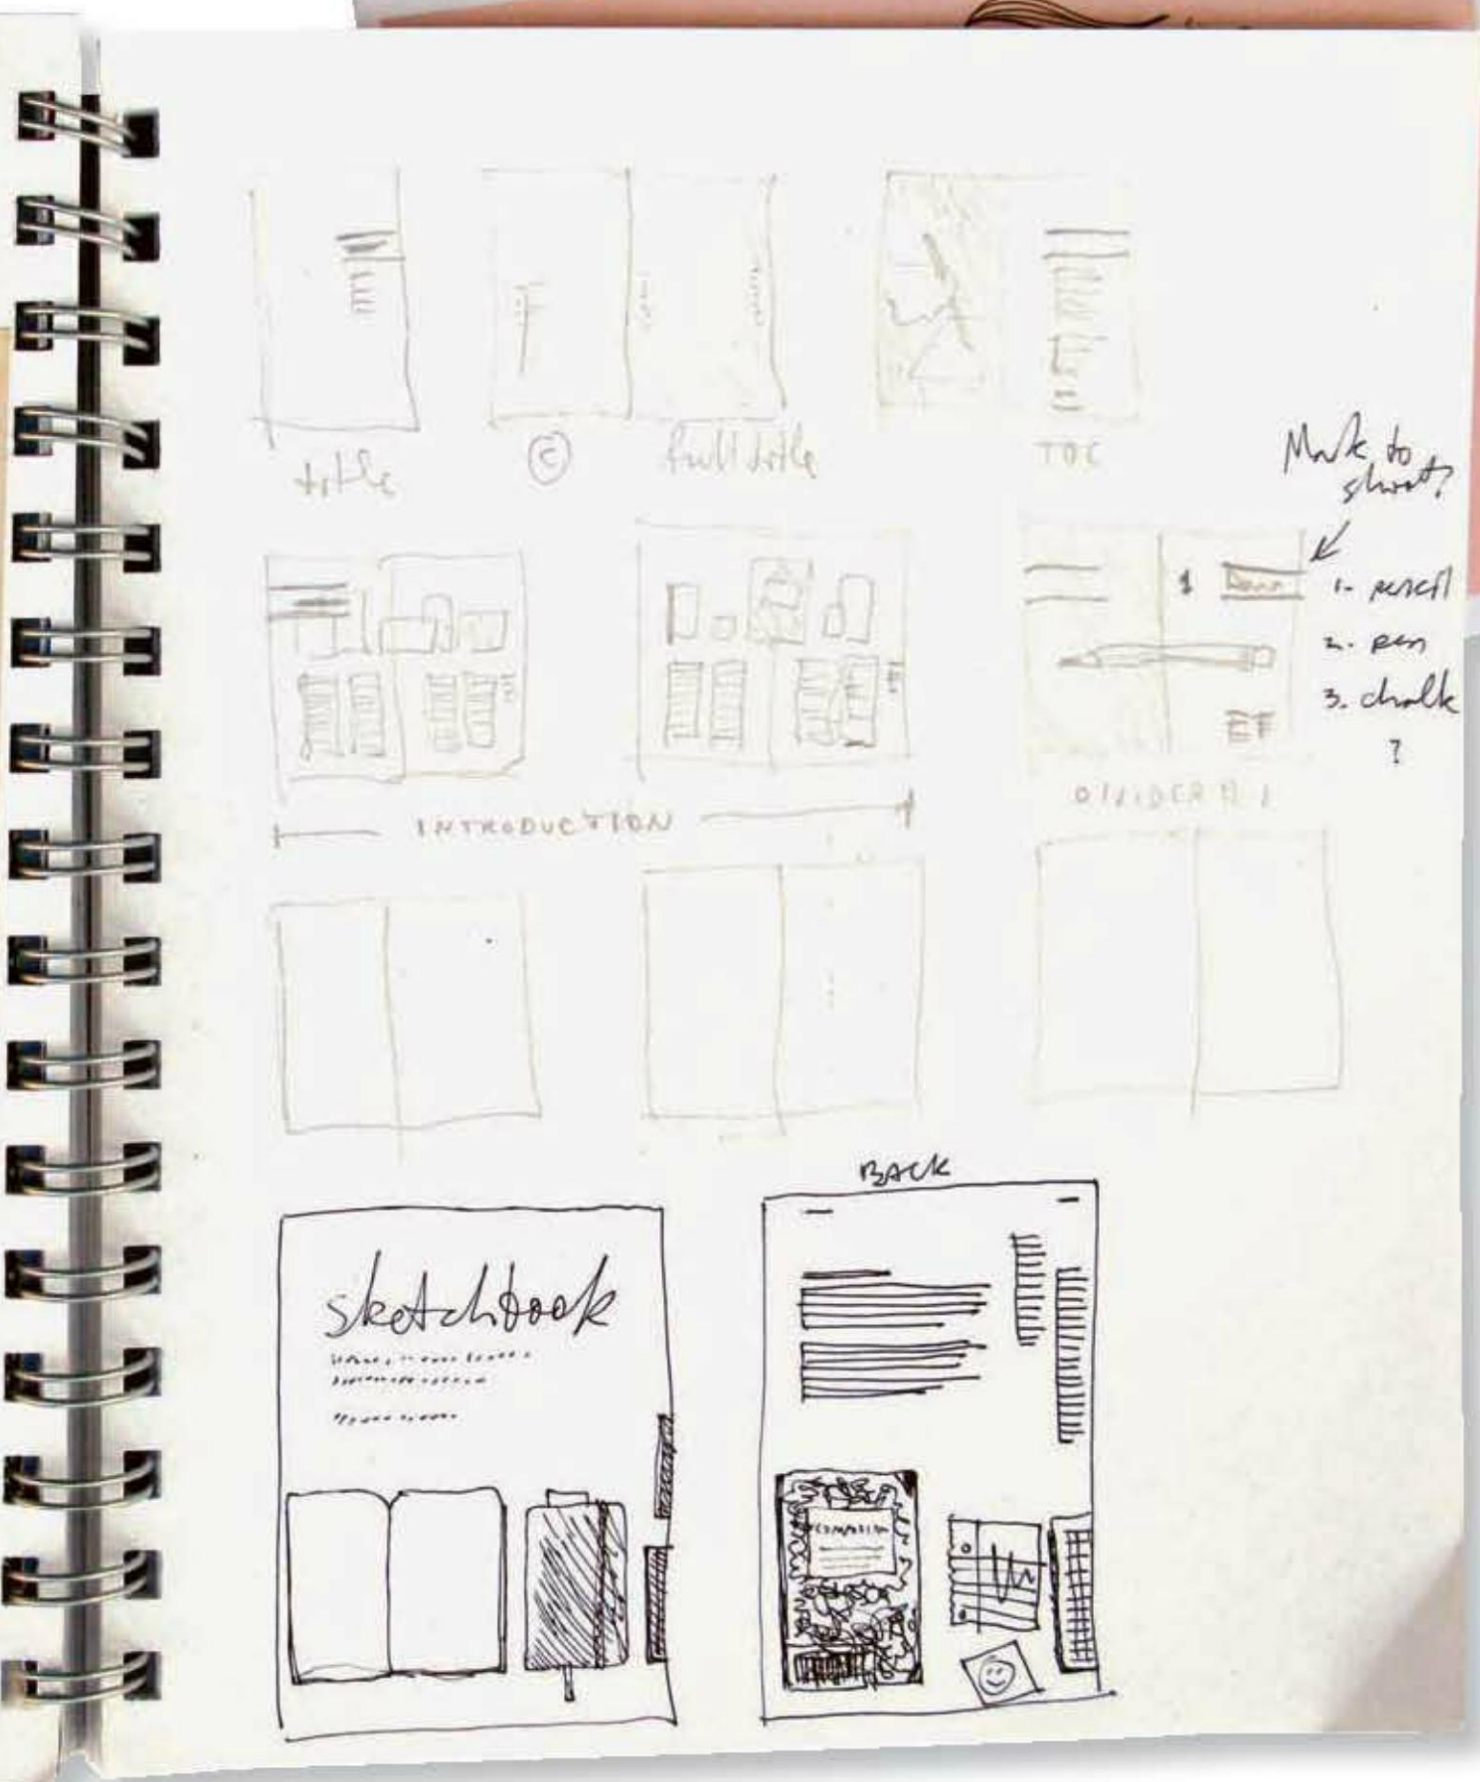 title
©
full title
TOC
Mark to
shoot?
1
1. pencil
2. pen
3. chalk
?
INTRODUCTION
DIVIDER # 1
BACK
sketchbook